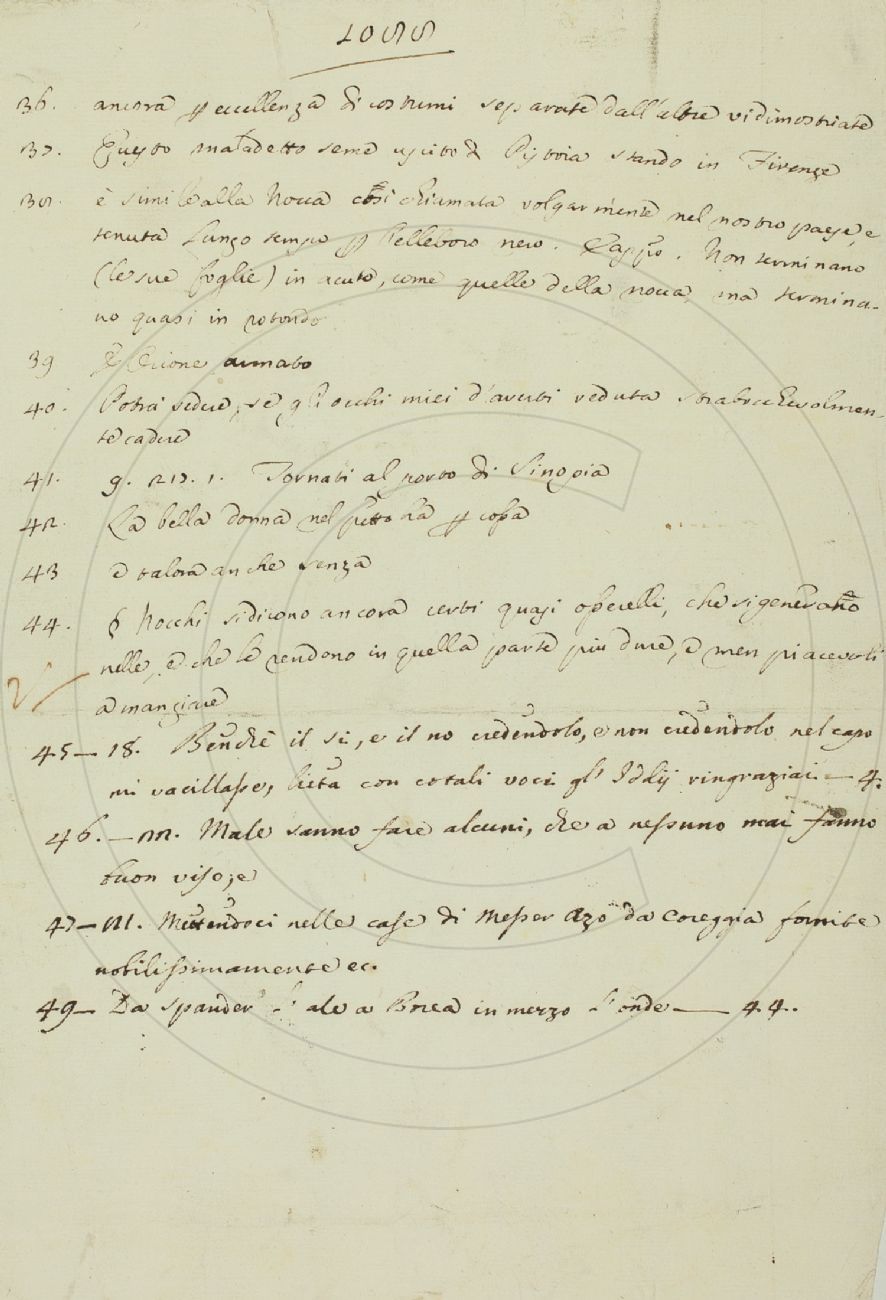 1088
36. ancora p eccellenza di costumi separate dall'altre vi dimostriate
37. Questo maladetto seme uscito di Pistoia stando in Firenze
38. è simile alla Nocca così chiamata volgarmente nel nostro paese, e
tenuta lungo tempo p Helleboro nero. Non terminano
(le sue foglie) in acuto, come quelle della nocca ma termina-
no quasi in rotondo
39 armato
40. Potrà sedere, se gli occhi miei d'averti veduta straboccevolmen-
te cadere
41. g. 217. 1. Tornati al porto di Sinopia
42. La bella donna nel petto
43 e talora anche senza
44. Nocchi si dicono ancora certi quasi osselli, che si generano
nelle , e che le rendono in quella parte più dure, e men piacevoli
a mangiare
45— 18. Benchè il sì, e il no credendolo, e non credendolo nel capo
mi vacillasse, lieta con cotali voci gl' Iddij ringraziai — 4.
46. — m. Male sanno fare alcuni, che a nessuno mai fanno
buon viso; e
47— M. Mettendoci nelle case di Messer Azo da Coreggia fornite
nobilissimamente ec.
49— Da spander l' ale a Borea in mezzo l' onde — 44.